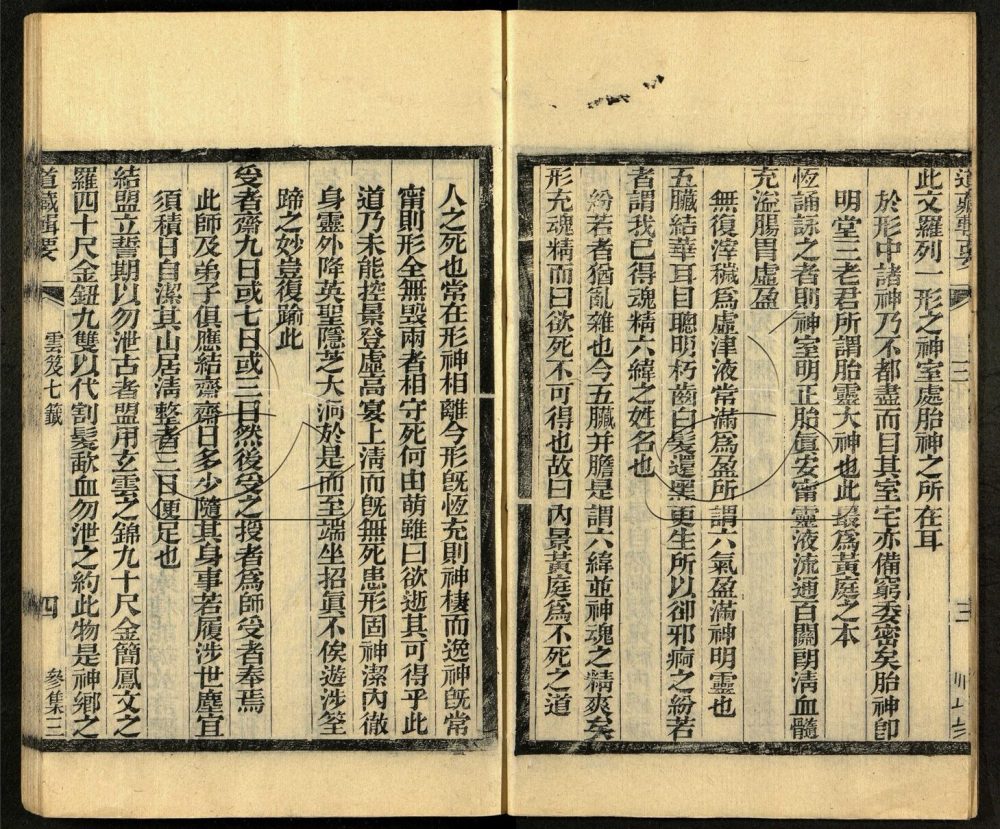 此文羅列一形之神室處胎神之所在耳
於形中諸神乃不都盡而目其室宅亦備窮委密矣胎神卽
明堂三老君所謂胎靈大神也此最爲黃庭之本
恆誦詠之者則神室明正胎眞安甯靈液流通百關朗清血髓
充溢腸胃虛盈
無復滓穢爲虛津液常滿爲盈所謂六氣盈滿神明靈也
五臟結華耳目聰明朽齒白髮還黑更生所以卻邪痾之紛若
者謂我已得魂精六緯之姓名也
紛若者猶亂雜也今五臟幷膽是謂六緯並神魂之精爽矣
形充魂精而曰欲死不可得也故曰內景黃庭爲不死之道
人之死也常在形神相離今形旣恆充則神棲而逸神旣常
甯則形全無毀兩者相守死何由萌雖曰欲逝其可得乎此
道乃未能控景登虛高宴上清而旣無死患形固神潔內徹
身靈外降英聖隱芝大洞於是而至端坐招眞不俟遊涉筌
蹄之妙豈復踰此
受者齋九日或七日或三日然後受之授者爲師受者奉焉
此師及弟子俱應結齋齋日多少隨其身事若履涉世塵宜
須積日自潔其山居清整者二日便足也
結盟立誓期以勿泄古者盟用玄雲之錦九十尺金簡鳳文之
羅四十尺金鈕九雙以代割髮歃血勿泄之約此物是神鄉之
道藏輯要
雲笈七籤
四
參集三